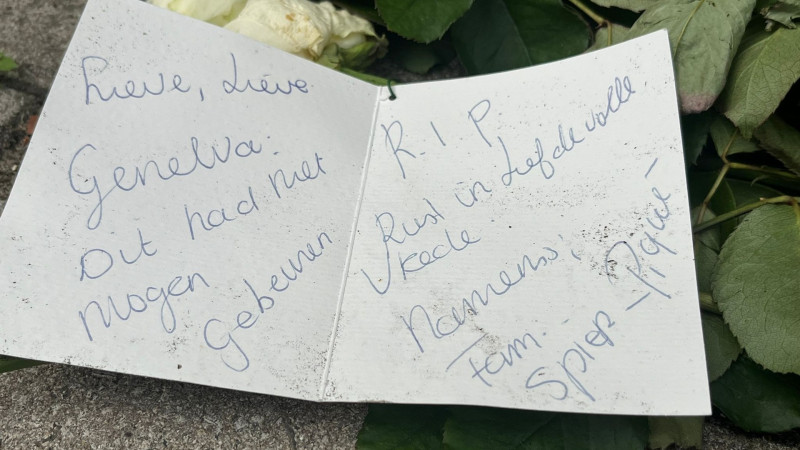 Lieve, Lieve
Genelva.
Dit had niet
mogen
Gebeuren
R.I.P.
Rust in Liefdevolle
Vrede
Namens:
Fam.
Spier - Piqué -